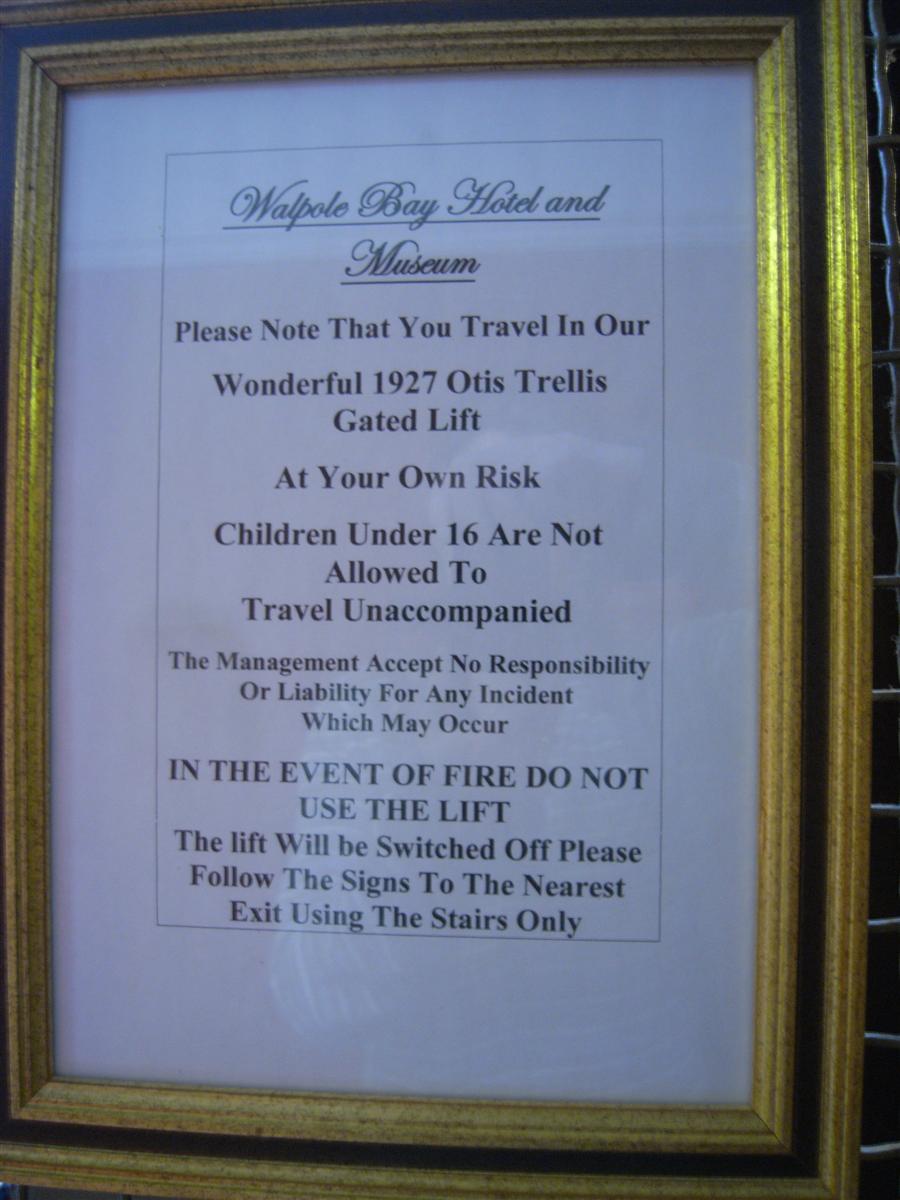 Walpole Bay Hotel and
Museum
Please Note That You Travel In Our
Wonderful 1927 Otis Trellis
Gated Lift
At Your Own Risk
Children Under 16 Are Not
Allowed To
Travel Unaccompanied
The Management Accept No Responsibility
Or Liability For Any Incident
Which May Occur
IN THE EVENT OF FIRE DO NOT
USE THE LIFT
The lift Will be Switched Off Please
Follow The Signs To The Nearest
Exit Using The Stairs Only